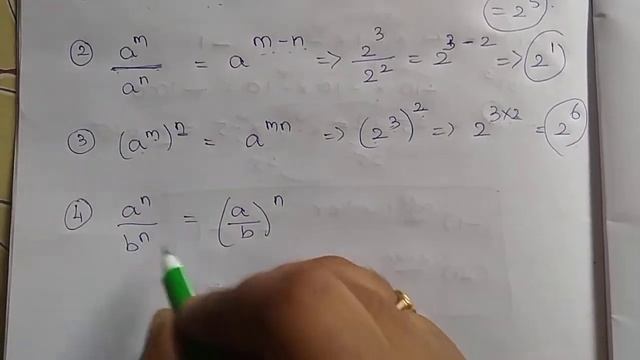 = 2⁵
② aᵐ/aⁿ = aᵐ⁻ⁿ => 2³/2² = 2³⁻² => 2¹
③ (aᵐ)ⁿ = aᵐⁿ => (2³)² => 2³ˣ² = 2⁶
④ aⁿ/bⁿ = (a/b)ⁿ